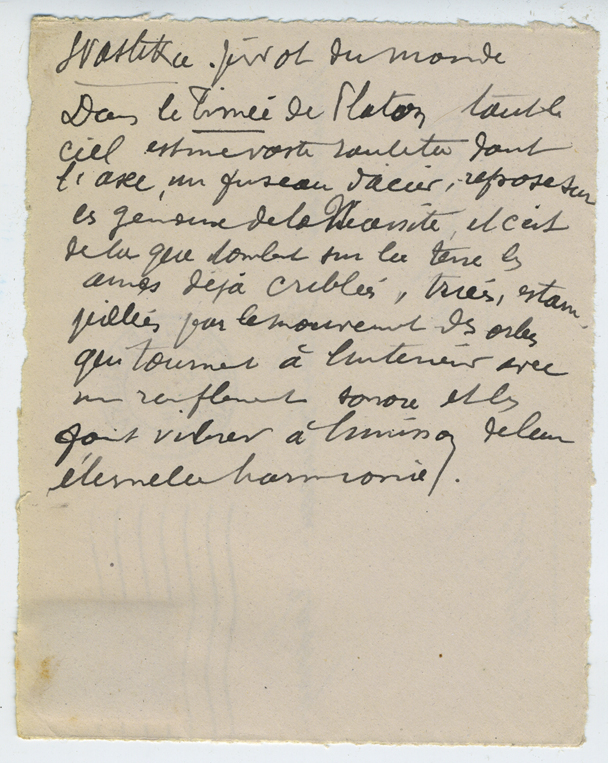 Svastika . pivot du monde
Dans le Timée de Platon tout le
ciel est une vaste roulette dont
l'axe, un fuseau d'acier, repose sur
les genoux de la Nécessité, et c'est
de là que tombent sur la terre les
âmes déjà criblées, triées, estam-
pillées par le mouvement des orbes
qui tournent à l'intérieur avec
un ronflement sonore et les
font vibrer à l'unisson de leur
éternelle harmonie.